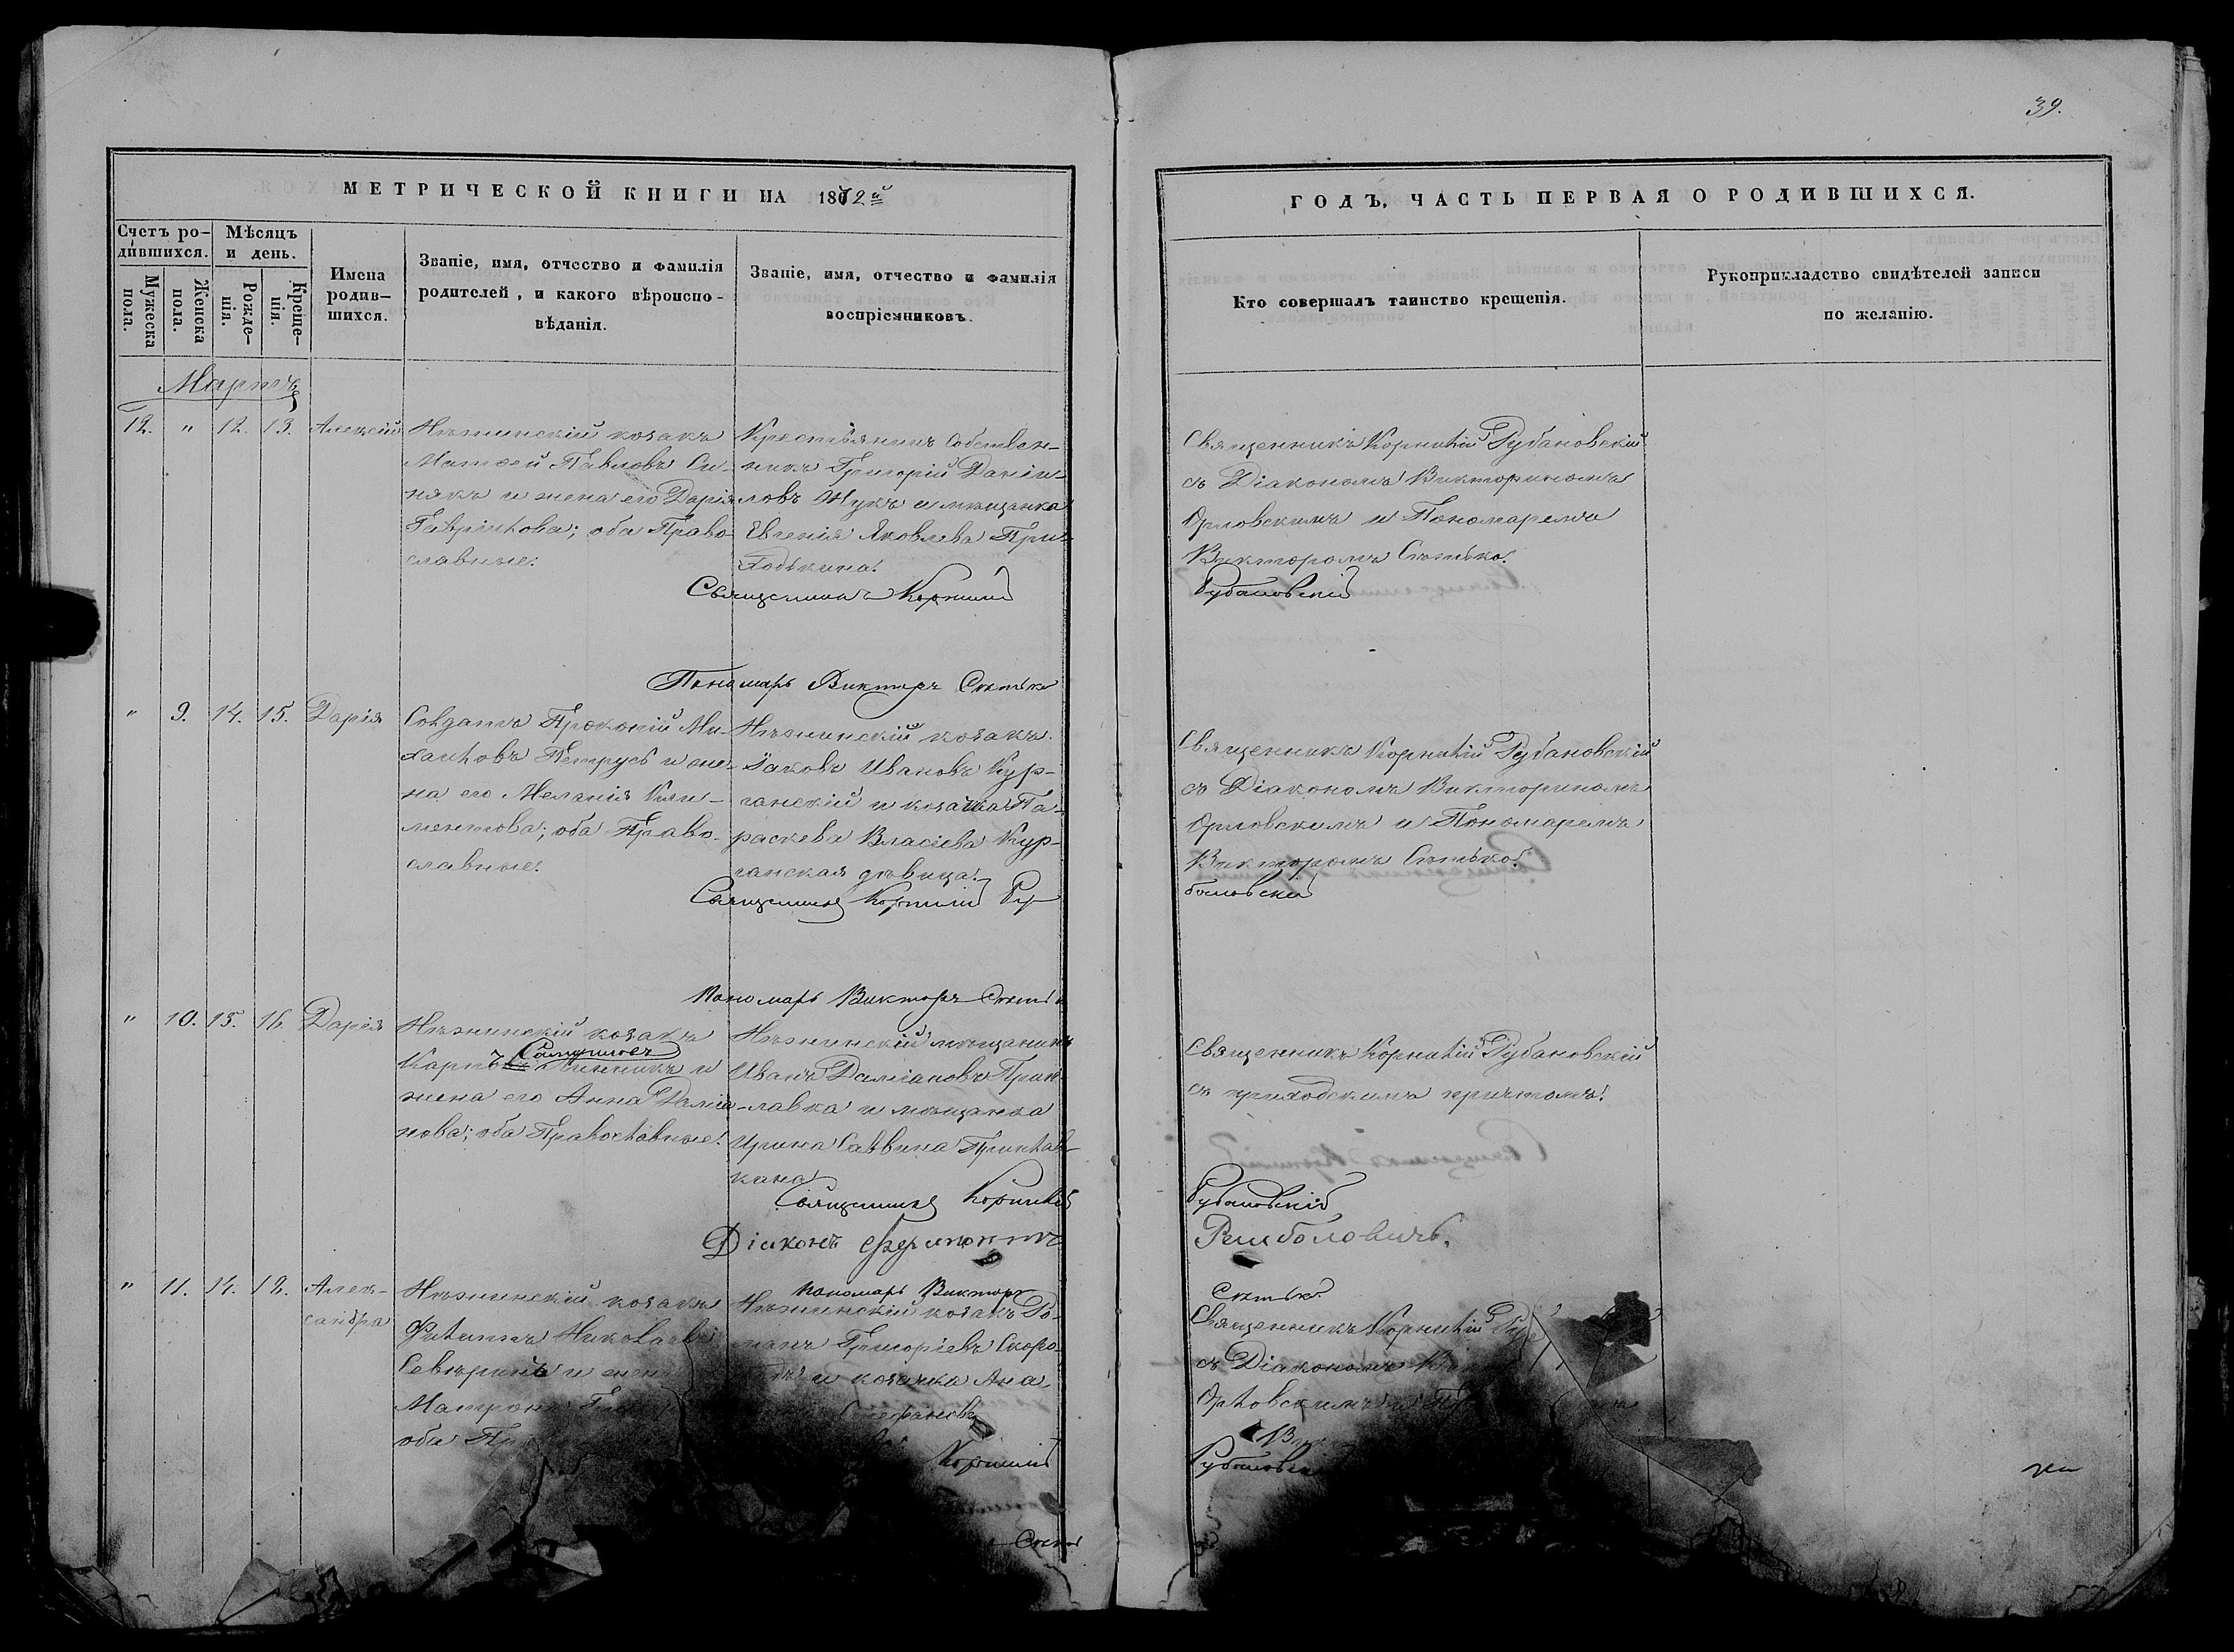 39.
МЕТРИЧЕСКОЙ КНИГИ НА 1872й
Счетъ ро-
дившихся.
Мужеска
пола.
Женска
пола.
Мѣсяцъ
и день.
Рожде-
нія.
Креще-
нія.
Имена
родив-
шихся.
Званіе, имя, отчество и фамилія
родителей, и какого вѣроиспо-
вѣданія.
Званіе, имя, отчество и фамилія
воспріемниковъ.
ГОДЪ, ЧАСТЬ ПЕРВАЯ О РОДИВШИХСЯ.
Кто совершалъ таинство крещенія.
Рукоприкладство свидѣтелей записи
по желанію.
Мартъ
12. " 12. 13. Алексій
Нѣжинскій козакъ
Матѳей Павловъ Си-
някъ и жена его Дарія
Гавріилова; оба Право-
славные.
Крестьянинъ собствен-
никъ Григорій Даніи-
ловъ Жукъ и мѣщанка
Евгенія Яковлева При-
ходькина.
Священникъ Корнилій
Пономарь Викторъ Сѣтько
Священникъ Корнилій Рубановскій
съ Діакономъ Викториномъ
Орловскимъ и Пономаремъ
Викторомъ Сѣтько.
Рубановскій
" 9. 14. 15. Дарія
Солдатъ Прокопій Ми-
хаиловъ Петрусь и же-
на его Меланія Кли-
ментова; оба Право-
славные.
Нѣжинскій козакъ
Іаковъ Ивановъ Кур-
ганскій и козачка Па-
раскева Власіева Кур-
ганская дѣвица.
Священникъ Корнилій Ру
Пономарь Викторъ Сѣтько
Священникъ Корнилій Рубановскій
съ Діакономъ Викториномъ
Орловскимъ и Пономаремъ
Викторомъ Сѣтько.
бановскій
" 10. 15. 16. Дарія
Нѣжинскій козакъ
Карпъ Самуиловъ и
жена его Анна Даміа-
нова; оба Православные.
Нѣжинскій мѣщанинъ
Иванъ Даміановъ
и мѣщанка
Ирина Саввина
Священникъ Корнилій
Діаконъ
Пономарь Викторъ
Священникъ Корнилій Рубановскій
съ приходскимъ причтомъ.
Рубановскій
Сѣтько
" 11. 14. 18. Алек-
сандра
Нѣжинскій козакъ
Филиппъ Николаевъ
Северинъ и жена
Матрона
оба Пра
Нѣжинскій козакъ Ро-
манъ Григоріевъ Скоро-
и козачка Ана-
Стефанова
Корнилій
Сѣтько
Священникъ Корнилій Ру
съ Діакономъ Ви
Орловскимъ и По
Ви
Рубановскій